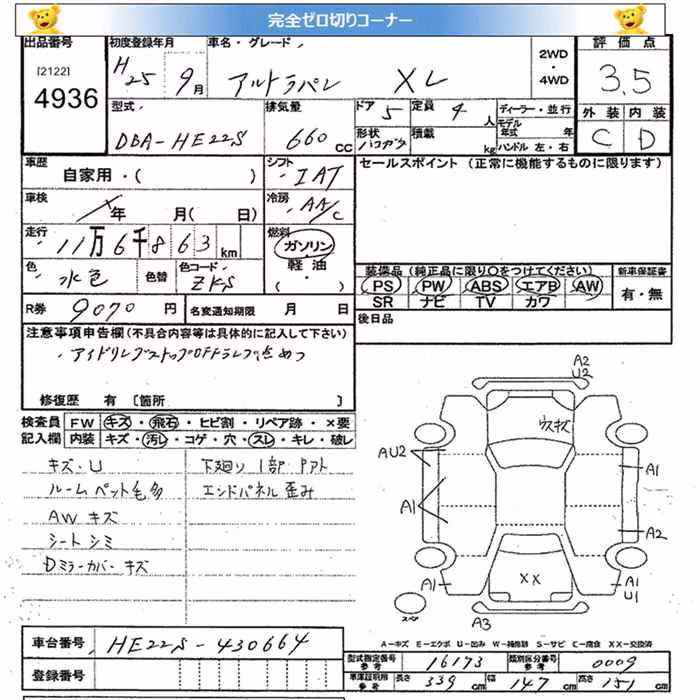 完全ゼロ切りコーナー
出品番号
[2122]
4936
初度登録年月
H25 9月
車名・グレード
アルトラパン XL
2WD・4WD
評価点
3.5
外装 内装
C D
型式
DBA-HE22S
排気量
660 CC
ドア 5
定員 4人
形状
積載 kg
ディーラー・並行
モデル年式 年
ハンドル 左・右
車歴
自家用・( )
シフト
IAT
セールスポイント (正常に機能するものに限ります)
車検
年 月( 日)
冷房
AA/C
走行
11万6千863km
燃料
ガソリン・軽油・( )
色
水色
色替
色コード
ZKS
装備品 (純正品に限り○をつけてください)
PS PW ABS エアB AW
SR ナビ TV カワ
新車保証書
有・無
R券
9070円
名変通知期限 月 日
後日品
注意事項申告欄(不具合内容等は具体的に記入して下さい)
アイドリングストップOFFランプ点めつ
修復歴 有 [箇所 ]
検査員記入欄
FW キズ・飛石・ヒビ割・リペア跡・×要
内装 キズ・汚レ・コゲ・穴・スレ・キレ・破レ
キズ・U
ルームペット毛多
AWキズ
シートシミ
Dミラーカバーキズ
下廻り1部Pアト
エンドパネル歪み
A2
U2
ウスキズ
AU2
A1
A1
A2
A1
XX
A1
U1
スペア
A3
A-キズ E-エクボ U-凹み W-補修跡 S-サビ C-腐食 XX-交換済
車台番号
HE22S-430664
登録番号
型式指定番号 参考
16173
類別区分番号 参考
0009
車庫証明用 参考
長さ 339cm
幅 147cm
高さ 151cm